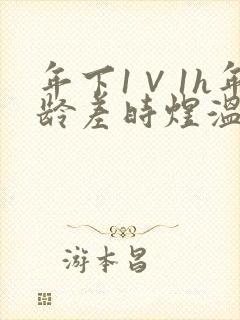 年下1V1h年
龄差时煌温
游本昌